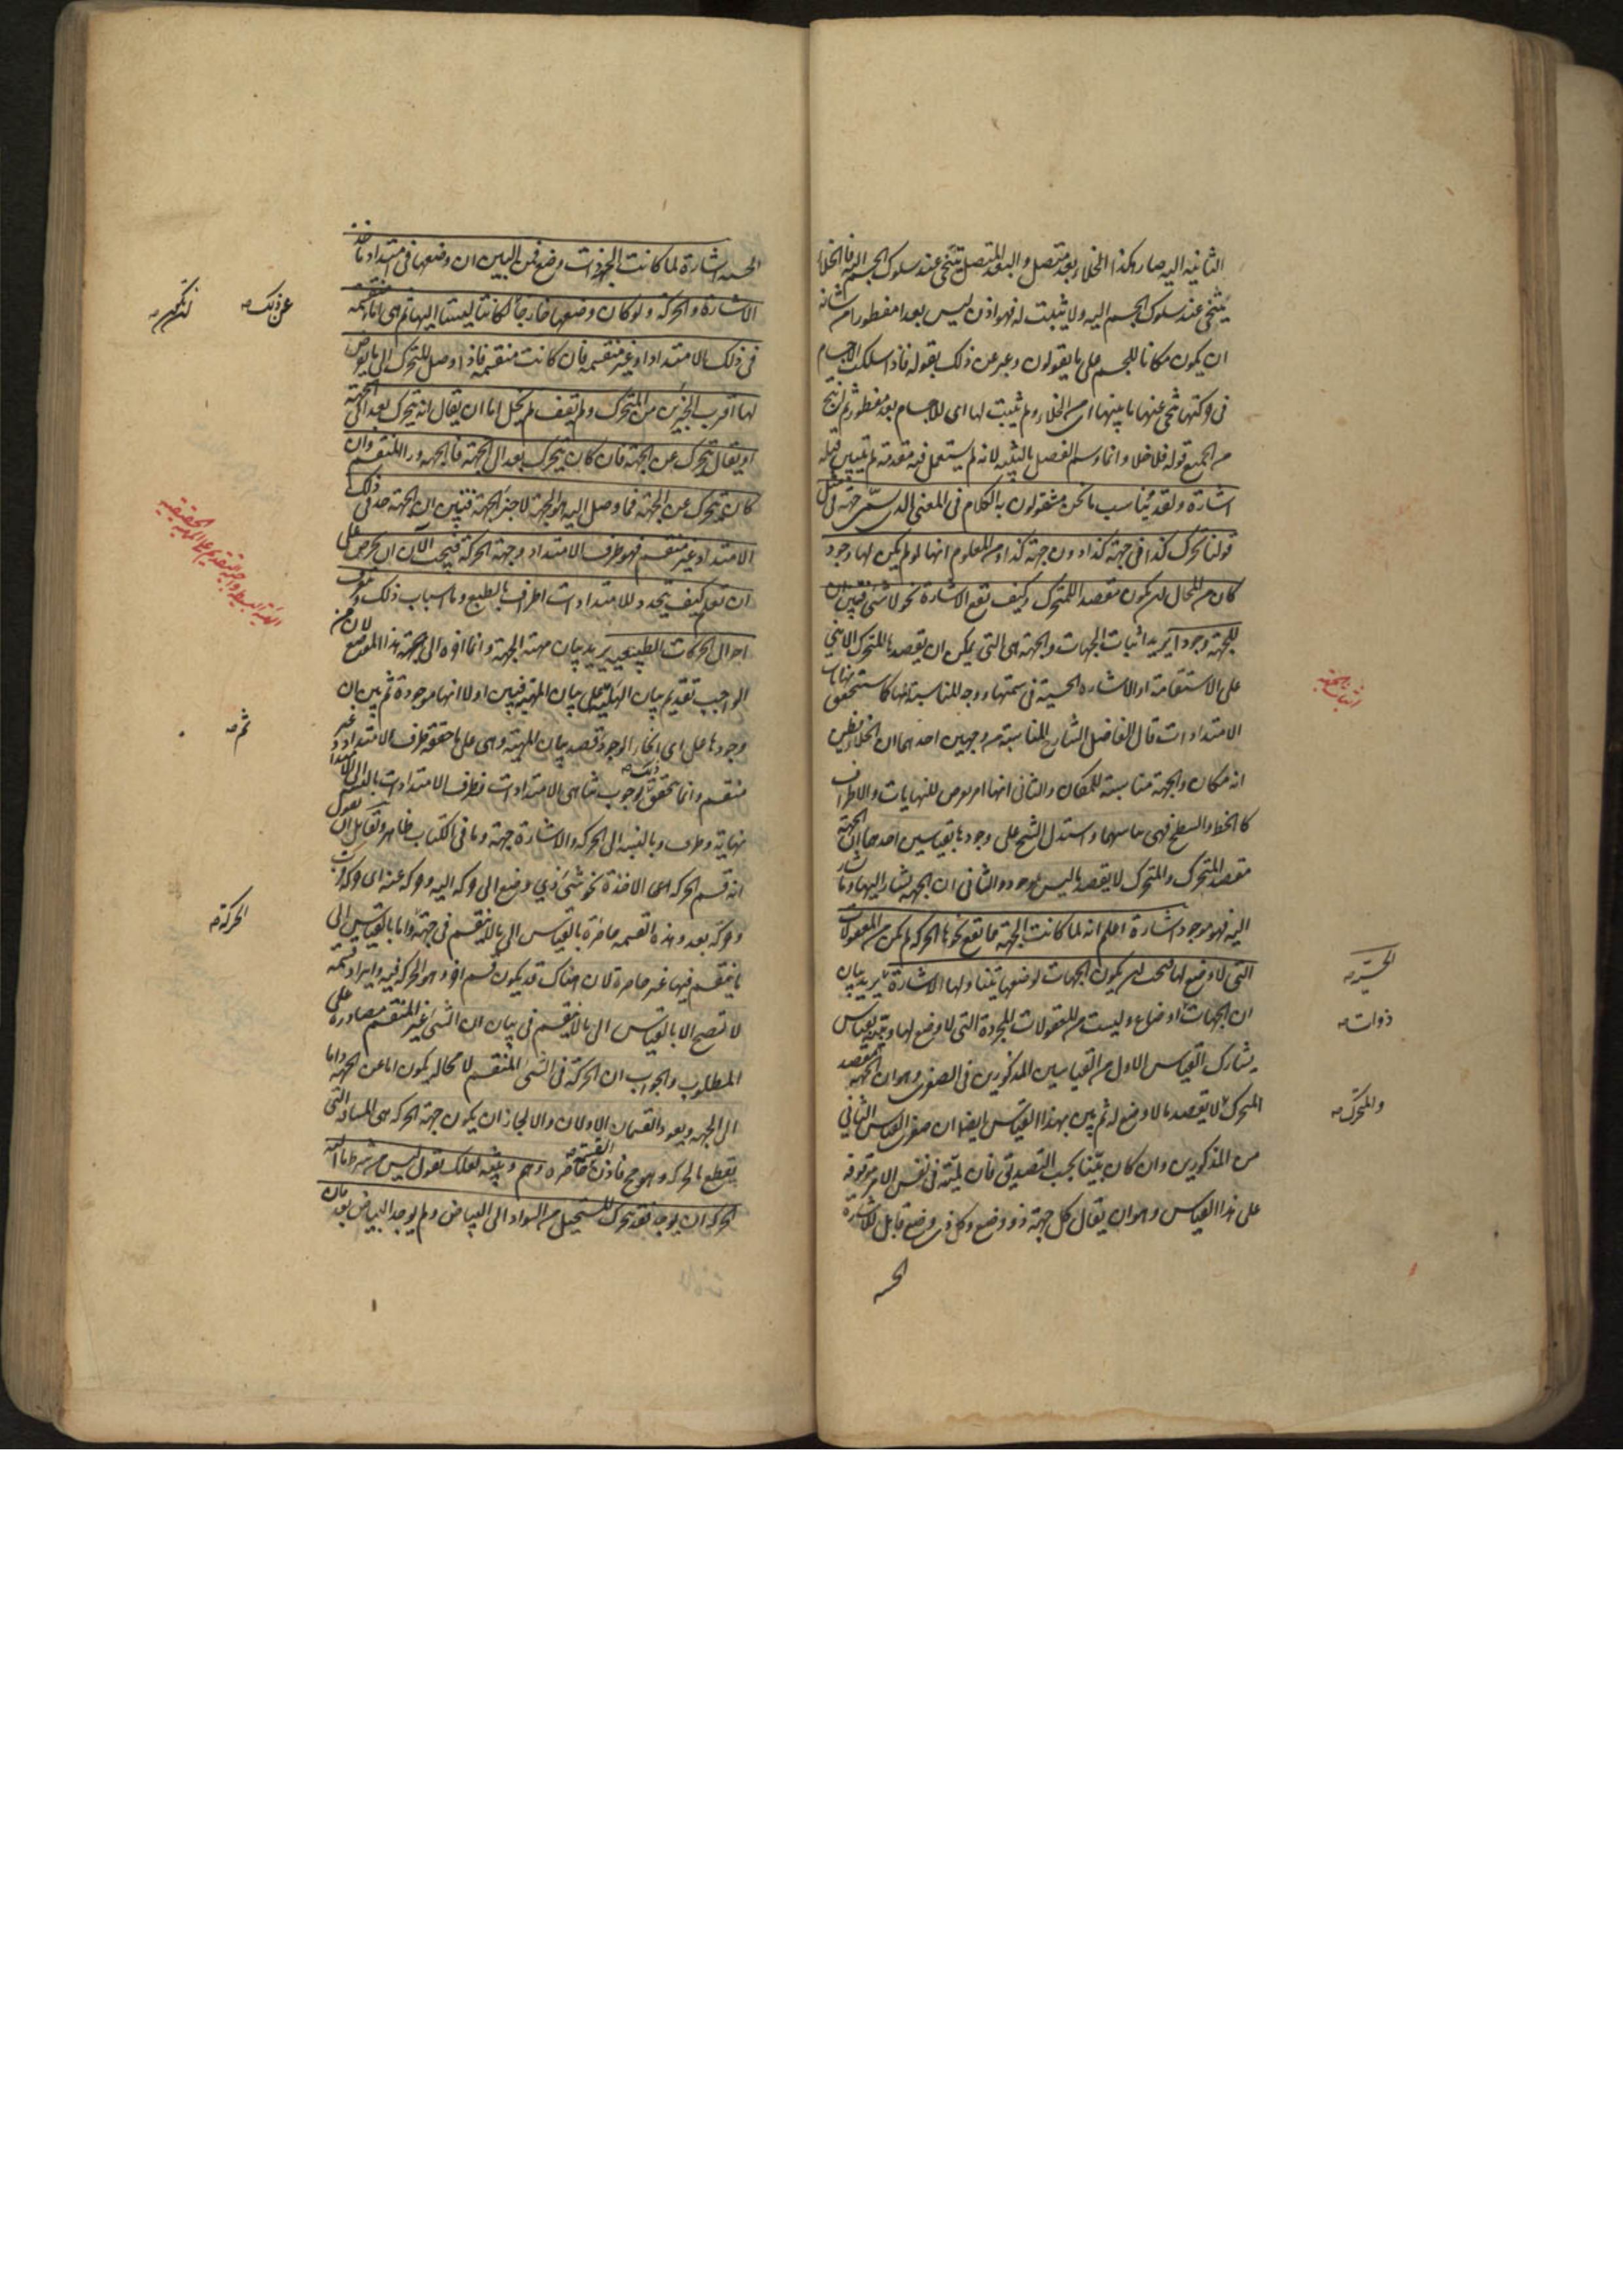 الثانية اليه صار هكذا الخلاء بعد متصل والبعد المتصل يتنحى عند سلوك الجسم اليه فالخلاء
يتنحى عند سلوك الجسم اليه ولا يثبت له فهو اذن ليس بعدا مفطورا من شانه
ان يكون مكانا للجسم على ما يقولون وعبر عن ذلك بقوله فاذا سلكت الاجسام
فى حركتها تنحى عنها ما بينها اى الخلاء ولم يثبت لها اى للاجسام بعد مفطور ثم انتج
من الجميع قوله فلا خلاء وانما وسم الفصل بالتنبيه لانه لم يستعمل فيه مقدمة لم يتبين قبله
اشارة ولقد يناسب ما نحن مشغولون به الكلام فى المعنى الذى يسمى جهة فى مثل
قولنا تحرك كذا فى جهة كذا دون جهة كذا ومن المعلوم انها لو لم يكن لها وجود
كان من المحال ان يكون مقصدا للمتحرك وكيف تقع الاشارة نحو لا شئ فتبين ان
للجهة وجودا يريد اثبات الجهات والجهة هى التى يمكن ان يقصدها المتحرك الاينى
على الاستقامة او الاشارة الحسية فى سمتها ووجه المناسبة انها كما ستحقق نهايات
الامتدادات قال الفاضل الشارح المناسبة من وجهين احدهما ان الخلاء يظن
انه مكان والجهة مناسبة للمكان والثانى انها امر يعرض للنهايات والاطراف
كالخط والسطح فهى يناسبهما واستدل الشيخ على وجودها بقياسين احدهما ان الجهة
مقصد المتحرك والمتحرك لا يقصد ما ليس بموجود والثانى ان الجهة يشار اليها وما يشار
اليه فهو موجود اشارة اعلم انه لما كانت الجهة مما تقع نحوها الحركة لم يكن من المعقولات
التى لا وضع لها فيجب ان يكون الجهات لوضعها يتناولها الاشارة يريد بيان
الحسية صه
ان الجهات اوضاع وليست من المعقولات المجردة التى لا وضع لها وبينه بقياس
ذوات صه
يشارك القياس الاول من القياسين المذكورين فى الصغرى وهو ان الجهة مقصد
المتحرك لا يقصد ما لا وضع له ثم بين بهذا القياس ايضا ان صغرى القياس الثانى
والمتحرك صه
من المذكورين وان كان بينا بحسب التصديق فان لميته فى نفس الامر موقوفة
على هذا القياس وهو ان يقال كل جهة ذو وضع وكل ذى وضع قابل للاشارة
الحسيه
الحسيه اشارة لما كانت الجهة ذات وضع فمن البين ان وضعها فى امتداد ماخذ
الاشارة والحركة ولو كان وضعها خارجا لكانتا ليستا اليها ثم هى اما منقسمة
عن ذلك صه
فى ذلك الامتداد او غير منقسمة فان كانت منقسمة فاذا وصل المتحرك الى ما يفرض
لها اقرب الجزئين من المتحرك ولم يقف لم يخل اما ان يقال انه يتحرك بعد الى الجهة
او يقال يتحرك عن الجهة فان كان يتحرك بعد الى الجهة فالجهة وراء المنقسم وان
كان يتحرك عن الجهة فما وصل اليه هو الجهة لا جزء الجهة فتبين ان الجهة حد فى ذلك
الامتداد غير منقسم فهو طرف الامتداد وجهة الحركة فيجب الآن ان تحرص على
ان تعلم كيف يتحدد للامتدادات اطراف بالطبع وما اسباب ذلك وتتعرف
احوال الحركات الطبيعية يريد بيان مهية الجهة وانما اخره الى هذا الموضع لان من
الواجب تقديم بيان الهلية على بيان المهية فبين اولا انها موجودة ثم بين ان
وجودها على اى انحاء الوجود قصد بيان المهية وهى على ما حققه طرف الامتداد غير
ثم صه
منقسم وانما يتحقق ذلك لوجوب تناهى الامتدادات فطرف الامتدادات بالنسبة الى الامتداد
نهاية وطرف وبالنسبة الى الحركة والاشارة جهة وما فى الكتاب ظاهر ولقائل ان يقول
انه قسم الحركة الاخذة نحو شئ ذى وضع الى حركة اليه وحركة عنه اى حركة قرب
وحركة بعد وهذه القسمة حاصرة بالقياس الى ما لا ينقسم فى جهة واما بالقياس الى
الحركة صه
ما ينقسم فيها غير حاصرة لان هناك قد يكون قسم اخر وهو الحركة فيه وايراد قسمة
لا تصح الا بالقياس الى ما لا ينقسم فى بيان ان الشئ غير المنقسم مصادرة على
المطلوب والجواب ان الحركة فى الشئ المنقسم لا محالة يكون اما عن الجهة واما
الى الجهة ويعود القسمان الاولان والا لجاز ان يكون جهة الحركة هى المسافة التى
يقطع بالحركة وهو مح فاذن القسمة حاصرة وهم وتنبيه لعلك تقول ليس من شرط ما اليه
الحركة ان يوجد فقد يتحرك المستحيل من السواد الى البياض ولم يوجد البياض بعد فان